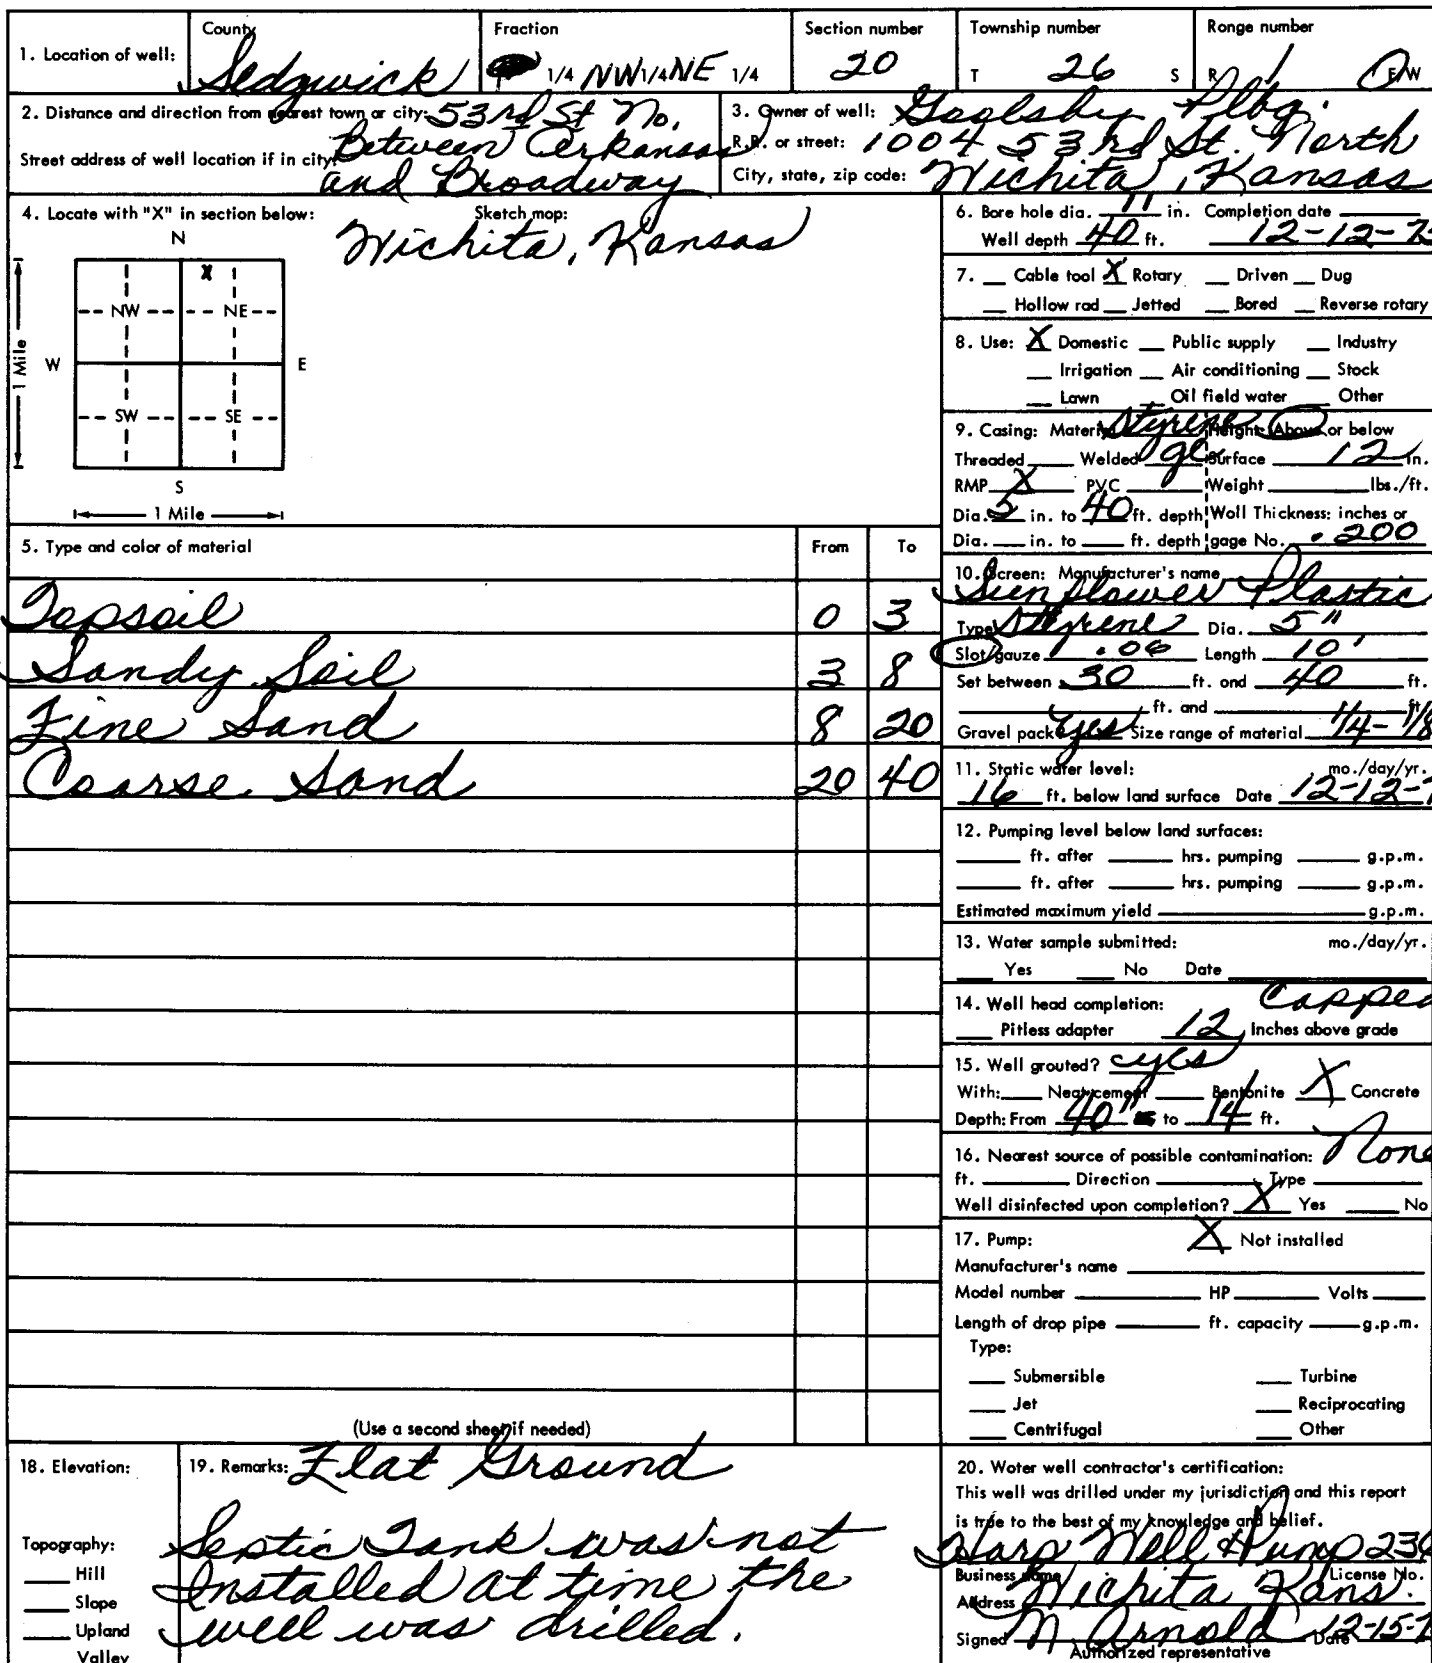 County Fraction Section number Township number Range number
1. Location of well: Sedgwick 1/4 NW 1/4 NE 1/4 20 T 26 S R 1 E/W
2. Distance and direction from nearest town or city: 53rd St No.
Between Arkansas
Street address of well location if in city:
and Broadway
3. Owner of well: Goolsby Plbg.
R.R. or street: 1004 53rd St. North
City, state, zip code: Wichita, Kansas
4. Locate with "X" in section below: Sketch map:
Wichita, Kansas
N
X
NW NE
W E
1 Mile
SW SE
S
1 Mile
5. Type and color of material From To
Topsoil 0 3
Sandy Soil 3 8
Fine Sand 8 20
Coarse Sand 20 40
(Use a second sheet if needed)
6. Bore hole dia. 11 in. Completion date
Well depth 40 ft. 12-12-7
7. Cable tool X Rotary Driven Dug
Hollow rod Jetted Bored Reverse rotary
8. Use: X Domestic Public supply Industry
Irrigation Air conditioning Stock
Lawn Oil field water Other
9. Casing: Material Styrene Height: Above or below
Threaded Welded Surface 12 in.
RMP X PVC Weight lbs./ft.
Dia. 5 in. to 40 ft. depth Wall Thickness: inches or
Dia. in. to ft. depth gage No. .200
10. Screen: Manufacturer's name
Sunflower Plastic
Type Styrene Dia. 5"
Slot/gauze .06 Length 10'
Set between 30 ft. and 40 ft.
ft. and ft.
Gravel pack yes Size range of material 1/4-1/8
11. Static water level: mo./day/yr.
16 ft. below land surface Date 12-12-7
12. Pumping level below land surfaces:
ft. after hrs. pumping g.p.m.
ft. after hrs. pumping g.p.m.
Estimated maximum yield g.p.m.
13. Water sample submitted: mo./day/yr.
Yes No Date
14. Well head completion: Capped
Pitless adapter 12 Inches above grade
15. Well grouted? yes
With: Neat cement Bentonite X Concrete
Depth: From 40" to 14 ft.
16. Nearest source of possible contamination: None
ft. Direction Type
Well disinfected upon completion? X Yes No
17. Pump: X Not installed
Manufacturer's name
Model number HP Volts
Length of drop pipe ft. capacity g.p.m.
Type:
Submersible Turbine
Jet Reciprocating
Centrifugal Other
18. Elevation:
Topography:
Hill
Slope
Upland
Valley
19. Remarks: Flat Ground
Septic Tank was not
Installed at time the
well was drilled.
20. Water well contractor's certification:
This well was drilled under my jurisdiction and this report
is true to the best of my knowledge and belief.
Harp Well & Pump 236
Business name License No.
Address Wichita Kans.
Signed M Arnold Date 12-15-7
Authorized representative